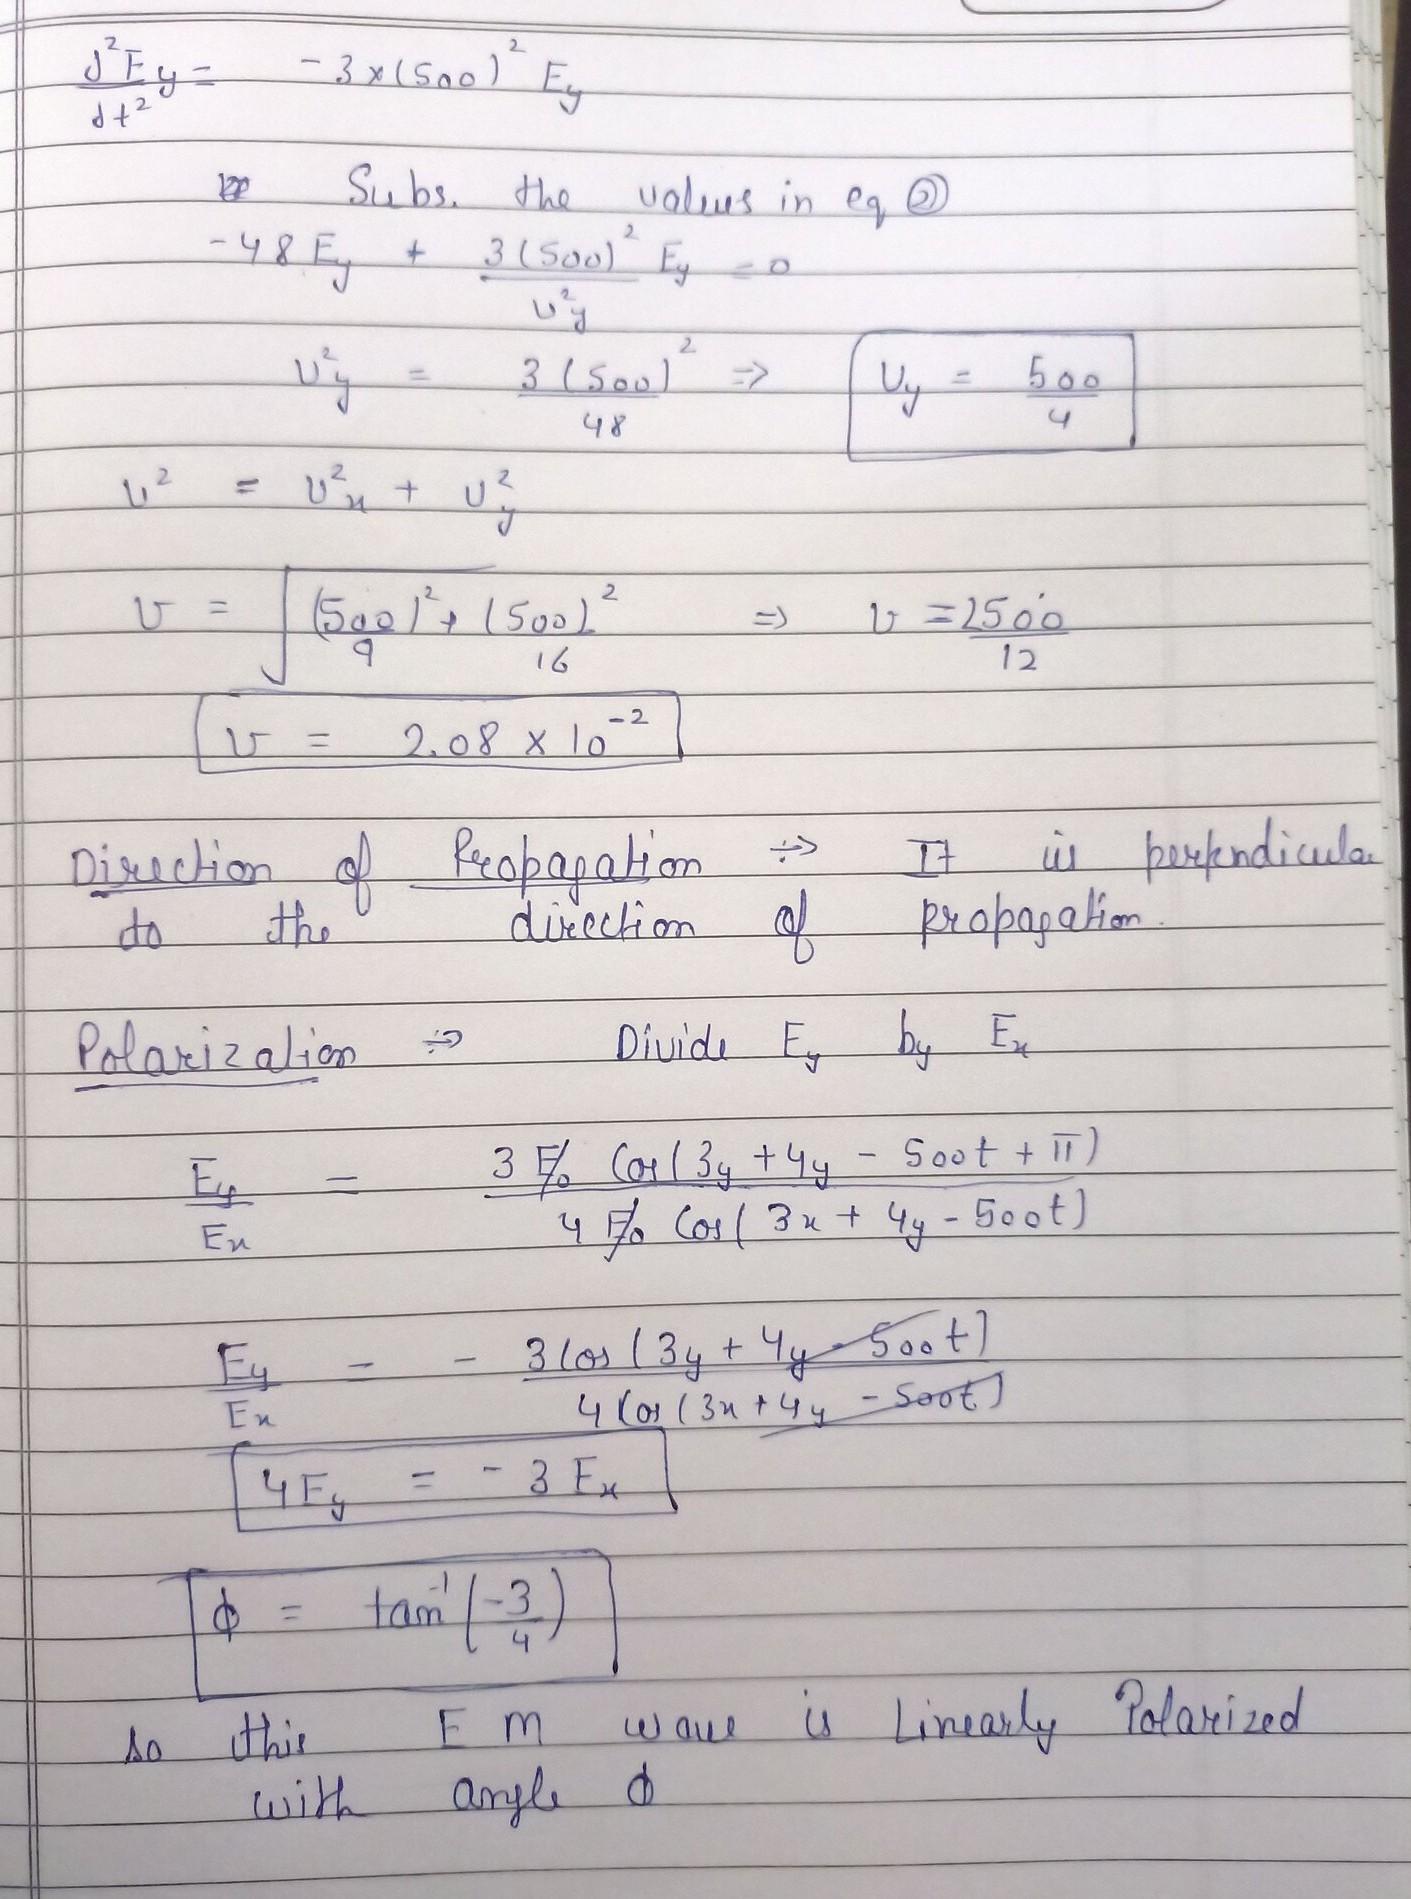 d²Ey/dt² = -3×(500)² Ey
Subs. the values in eq ②
-48 Ey + 3(500)²/v²y Ey = 0
v²y = 3(500)²/48 ⇒ vy = 500/4
v² = v²x + v²y
v = √((500)²/9 + (500)²/16) ⇒ v = 2500/12
v = 2.08 × 10⁻²
Direction of Propagation ÷> It is perpendicula
to the direction of propagation.
Polarization ÷> Divide Ey by Ex
Ey/Ex = 3 E₀ Cos(3y + 4y - 500t + π)/4 E₀ Cos(3x + 4y - 500t)
Ey/Ex = - 3 Cos(3y + 4y - 500t)/4 Cos(3x + 4y - 500t)
4Ey = - 3 Ex
ϕ = tan⁻¹(-3/4)
so this E M wave is Linearly Polarized
with angle ϕ